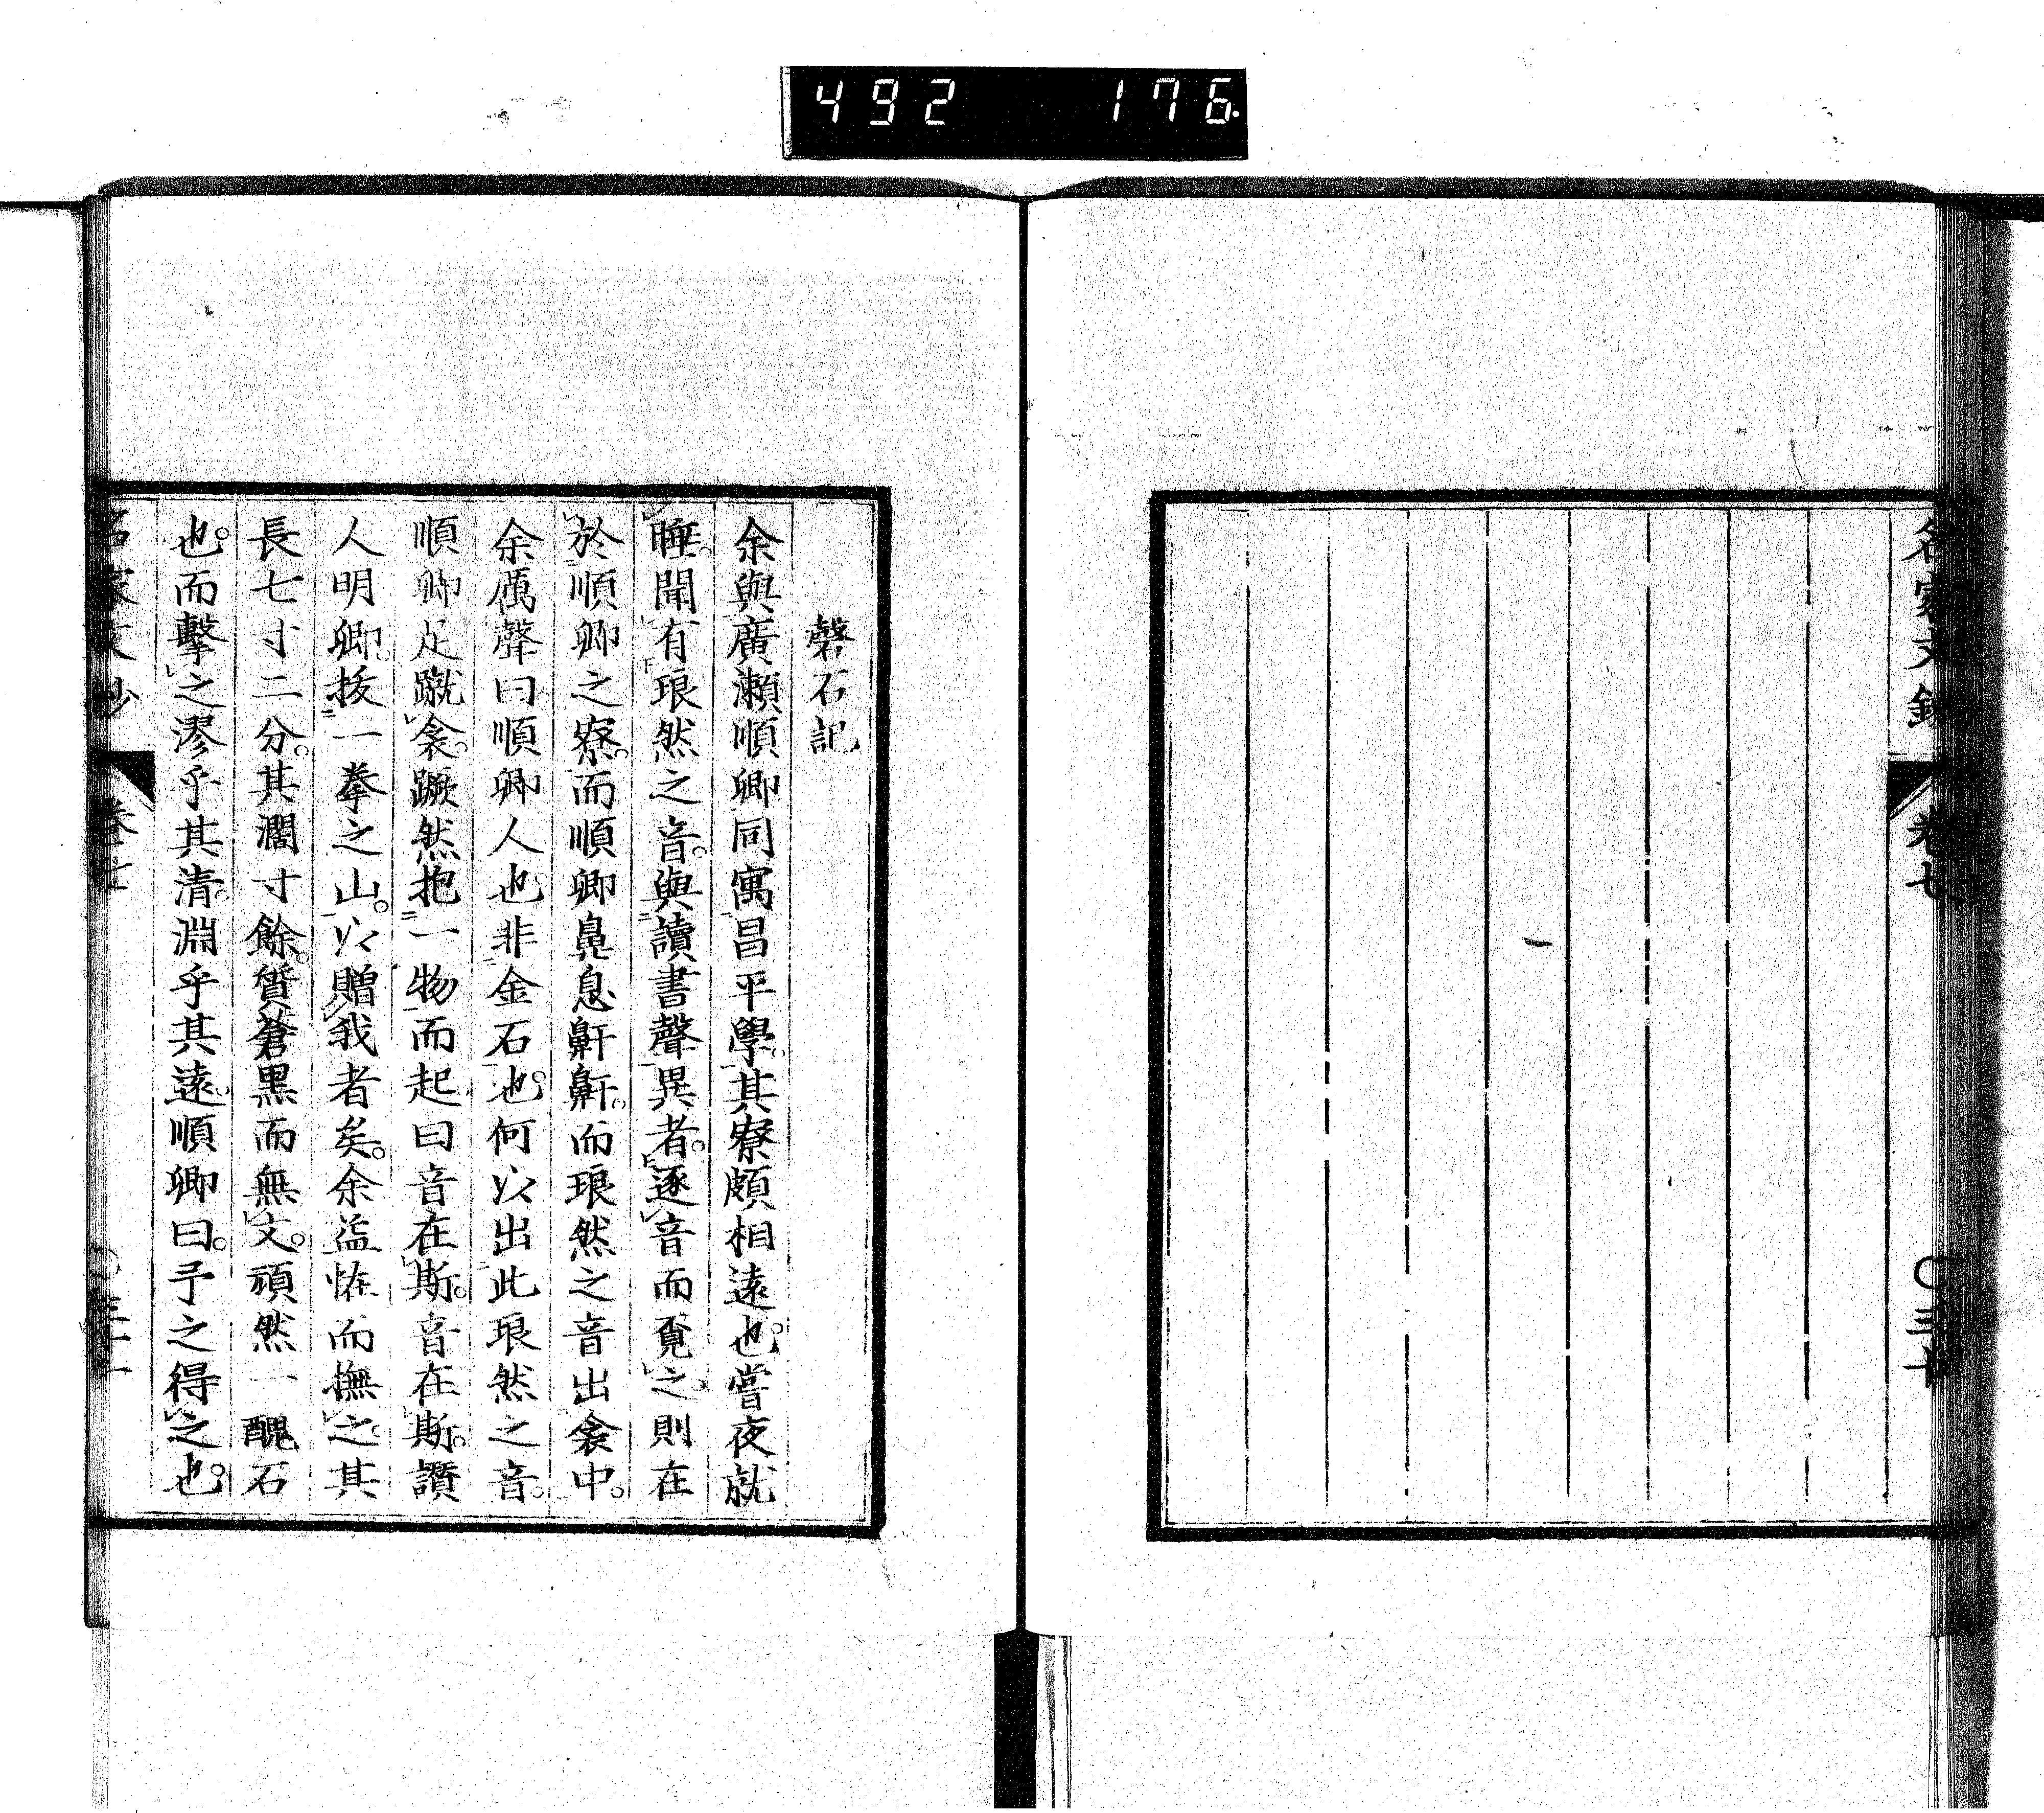 492 176.
名家文鈔 卷七 〇三十
磬石記
余與廣瀬順卿同寓昌平學。其寮頗相遠也。嘗夜就
睡。聞有琅然之音。與讀書聲異者。逐音而覔之。則在
於順卿之寮。而順卿鼻息鼾鼾。而琅然之音出衾中。
余厲聲曰順卿人也。非金石也。何以出此琅然之音。
順卿足蹴衾。蹶然抱一物而起曰音在斯。音在斯。讚
人明卿。援一拳之山。以贈我者矣。余益恠而撫之。其
長七寸二分。其濶寸餘。質蒼黒而無文。頑然一醜石
也。而擊之漻乎其清。淵乎其遠。順卿曰。予之得之也。
名家文鈔 卷七